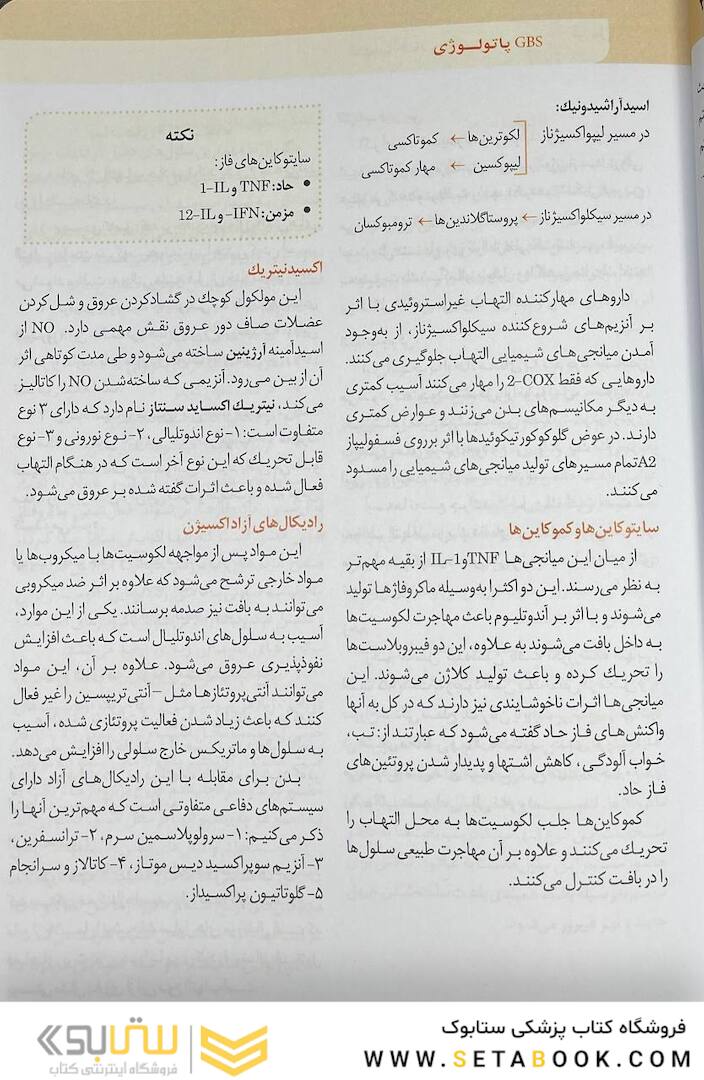 GBS پاتولوژی
اسیدآراشیدونیك:
در مسیر لیپواکسیژناز
لکوترین‌ها ← کموتاکسی
لیپوکسین ← مهار کموتاکسی
در مسیر سیکلواکسیژناز ← پروستاگلاندین‌ها ← ترومبوکسان
داروهای مهارکننده التهاب غیراستروئیدی با اثر
بر آنزیم‌های شروع‌کننده سیکلواکسیژناز، از به‌وجود
آمدن میانجی‌های شیمیایی التهاب جلوگیری می‌کنند.
داروهایی که فقط COX-2 را مهار می‌کنند آسیب کمتری
به دیگر مکانیسم‌های بدن می‌زنند و عوارض کمتری
دارند. در عوض گلوکوکورتیکوئیدها با اثر برروی فسفولیپاز
A2تمام مسیرهای تولید میانجی‌های شیمیایی را مسدود
می‌کنند.
سایتوکاین‌ها و کموکاین‌ها
از میان این میانجی‌ها TNFو IL-1 از بقیه مهم‌تر
به نظر می‌رسند. این دو اکثرا به‌وسیله ماکروفاژها تولید
می‌شوند و با اثر بر آندوتلیوم باعث مهاجرت لکوسیت‌ها
به داخل بافت می‌شوند به علاوه، این دو فیبروبلاست‌ها
را تحریك کرده و باعث تولید کلاژن می‌شوند. این
میانجی‌ها اثرات ناخوشایندی نیز دارند که در کل به آنها
واکنش‌های فاز حاد گفته می‌شود که عبارتند از: تب،
خواب آلودگی، کاهش اشتها و پدیدار شدن پروتئین‌های
فاز حاد.
کموکاین‌ها جلب لکوسیت‌ها به محل التهاب را
تحریك می‌کنند و علاوه بر آن مهاجرت طبیعی سلول‌ها
را در بافت کنترل می‌کنند.
نکته
سایتوکاین‌های فاز:
• حاد: TNF و IL-1
• مزمن: IFN- و IL-12
اکسیدنیتریك
این مولکول کوچك در گشادکردن عروق و شل‌کردن
عضلات صاف دور عروق نقش مهمی دارد. NO از
اسیدآمینه آرژینین ساخته می‌شود و طی مدت کوتاهی اثر
آن از بین می‌رود. آنزیمی که ساخته‌شدن NO را کاتالیز
می‌کند، نیتریك اکساید سنتاز نام دارد که دارای ۳ نوع
متفاوت است: ۱- نوع اندوتلیالی، ۲- نوع نورونی و ۳- نوع
قابل تحریك که این نوع آخر است که در هنگام التهاب
فعال شده و باعث اثرات گفته شده بر عروق می‌شود.
رادیکال‌های آزاد اکسیژن
این مواد پس از مواجهه لکوسیت‌ها با میکروب‌ها یا
مواد خارجی ترشح می‌شود که علاوه بر اثر ضد میکروبی
می‌توانند به بافت نیز صدمه برسانند. یکی از این موارد،
آسیب به سلول‌های اندوتلیال است که باعث افزایش
نفوذپذیری عروق می‌شود. علاوه بر آن، این مواد
می‌توانند آنتی‌پروتئازها مثل –آنتی‌تریپسین را غیر فعال
کنند که باعث زیاد شدن فعالیت پروتئازی شده، آسیب
به سلول‌ها و ماتریکس خارج سلولی را افزایش می‌دهد.
بدن برای مقابله با این رادیکال‌های آزاد دارای
سیستم‌های دفاعی متفاوتی است که مهم‌ترین آنها را
ذکر می‌کنیم: ۱- سرولوپلاسمین سرم، ۲- ترانسفرین،
۳- آنزیم سوپراکسید دیس موتاز، ۴- کاتالاز و سرانجام
۵- گلوتاتیون پراکسیداز.
فروشگاه کتاب پزشکی ستابوک
WWW.SETABOOK.COM
ستابوک
فروشگاه اینترنتی کتاب